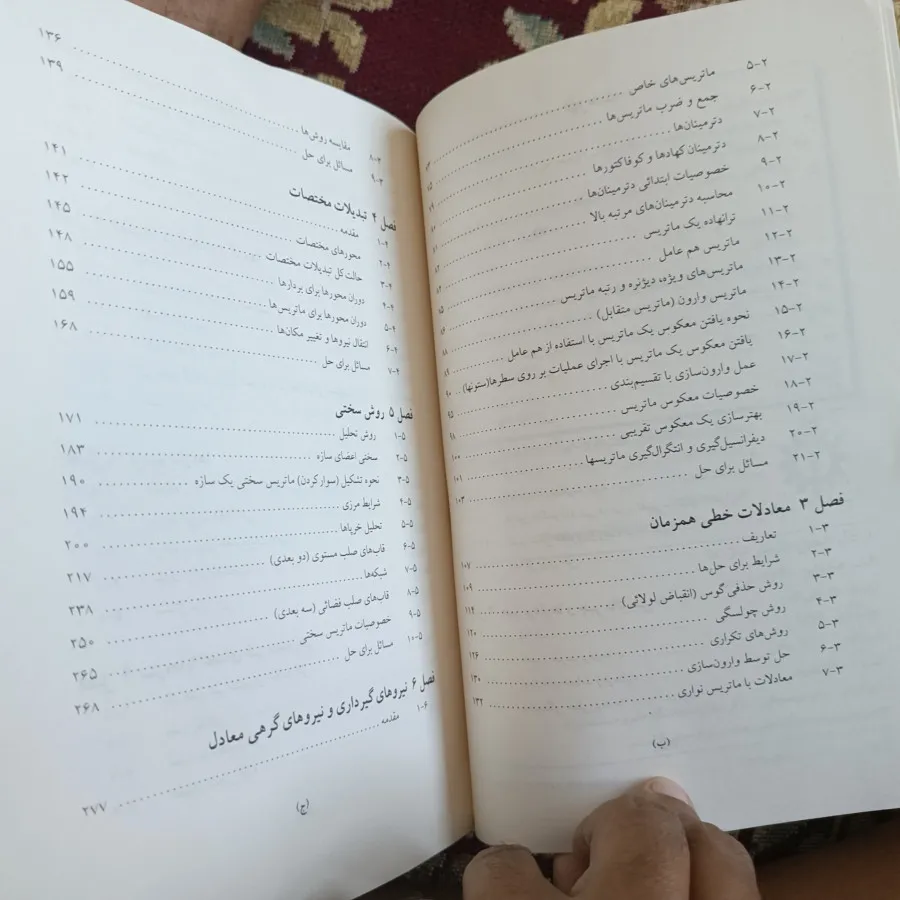 ۵-۲ ماتریس‌های خاص
۶-۲ جمع و ضرب ماتریس‌ها
۷-۲ دترمینان‌ها
۸-۲ دترمینان کهادها و کوفاکتورها
۹-۲ خصوصیات ابتدائی دترمینان‌ها
۱۰-۲ محاسبه دترمینان‌های مرتبه بالا
۱۱-۲ ترانهاده یک ماتریس
۱۲-۲ ماتریس هم عامل
۱۳-۲ ماتریس‌های ویژه، دیژنره و رتبه ماتریس ۸۶
۱۴-۲ ماتریس وارون (ماتریس متقابل) ۸۸
۱۵-۲ نحوه یافتن معکوس یک ماتریس با استفاده از هم عامل ۸۹
۱۶-۲ یافتن معکوس یک ماتریس با اجرای عملیات بر روی سطرها(ستونها) ۹۰
۱۷-۲ عمل وارون‌سازی با تقسیم‌بندی ۹۵
۱۸-۲ خصوصیات معکوس ماتریس ۹۸
۱۹-۲ بهترسازی یک معکوس تقریبی ۱۰۰
۲۰-۲ دیفرانسیل‌گیری و انتگرال‌گیری ماتریسها ۱۰۱
۲۱-۲ مسائل برای حل ۱۰۳
فصل ۳ معادلات خطی همزمان
۱-۳ تعاریف ۱۰۷
۲-۳ شرایط برای حل‌ها ۱۰۹
۳-۳ روش حذفی گوس (انقباض لولائی) ۱۱۴
۴-۳ روش چولسگی ۱۲۰
۵-۳ روش‌های تکراری ۱۲۶
۶-۳ حل توسط وارون‌سازی ۱۳۰
۷-۳ معادلات با ماتریس نواری ۱۳۲
(ب)
۸-۳ مقایسه روش‌ها ۱۳۶
۹-۳ مسائل برای حل ۱۳۹
فصل ۴ تبدیلات مختصات
۱-۴ مقدمه ۱۴۱
۲-۴ محورهای مختصات ۱۴۲
۳-۴ حالت کل تبدیلات مختصات ۱۴۵
۴-۴ دوران محورها برای بردارها ۱۴۸
۵-۴ دوران محورها برای ماتریس‌ها ۱۵۵
۶-۴ انتقال نیروها و تغییر مکان‌ها ۱۵۹
۷-۴ مسائل برای حل ۱۶۸
فصل ۵ روش سختی
۱-۵ روش تحلیل ۱۷۱
۲-۵ سختی اعضای سازه ۱۸۳
۳-۵ نحوه تشکیل (سوار کردن) ماتریس سختی یک سازه ۱۹۰
۴-۵ شرایط مرزی ۱۹۴
۵-۵ تحلیل خرپاها ۲۰۰
۶-۵ قاب‌های صلب مستوی (دو بعدی) ۲۱۷
۷-۵ شبکه‌ها ۲۳۸
۸-۵ قاب‌های صلب فضائی (سه بعدی) ۲۵۰
۹-۵ خصوصیات ماتریس سختی ۲۶۵
۱۰-۵ مسائل برای حل ۲۶۸
فصل ۶ نیروهای گیرداری و نیروهای گرهی معادل
۱-۶ مقدمه ۲۷۷
(ج)